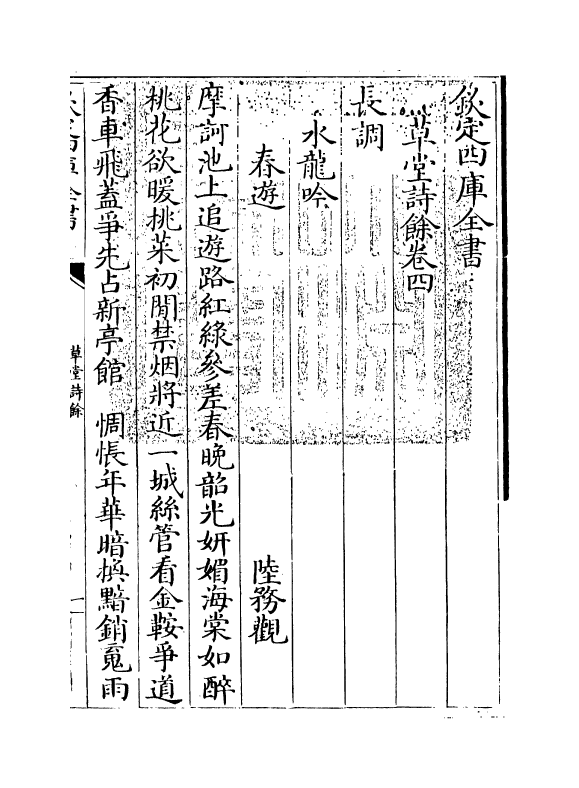 欽定四庫全書
草堂詩餘卷四
長調
水龍吟
春遊 陸務觀
摩訶池上追遊路紅綠參差春晚韶光妍媚海棠如醉
桃花欲暖挑菜初閒禁烟將近一城絲管看金鞍爭道
香車飛蓋爭先占新亭館 惆悵年華暗換黯銷䰟雨
草堂詩餘
一